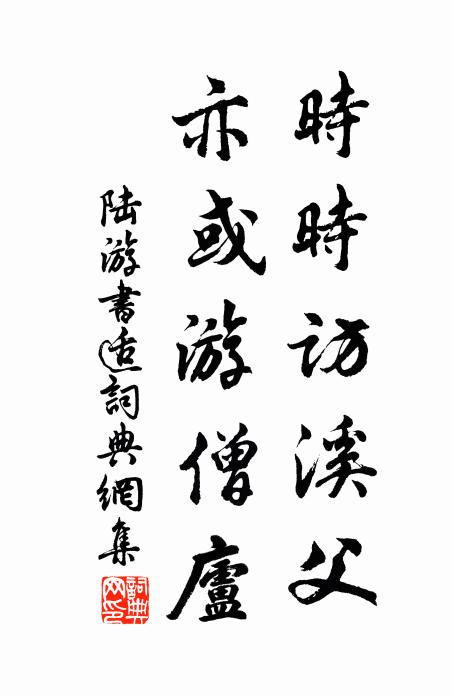 時時訪溪父
亦或游僧廬
陸游書适詞典網集
詞典网印